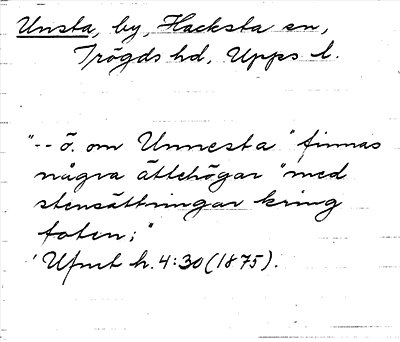 Unsta, by, Hacksta sn,
Trögds hd, Upps l.
"-- ö. om Unnesta" finnas
några ättehögar "med
stensättningar kring
foten;"
Ufmt h. 4:30 (1875).